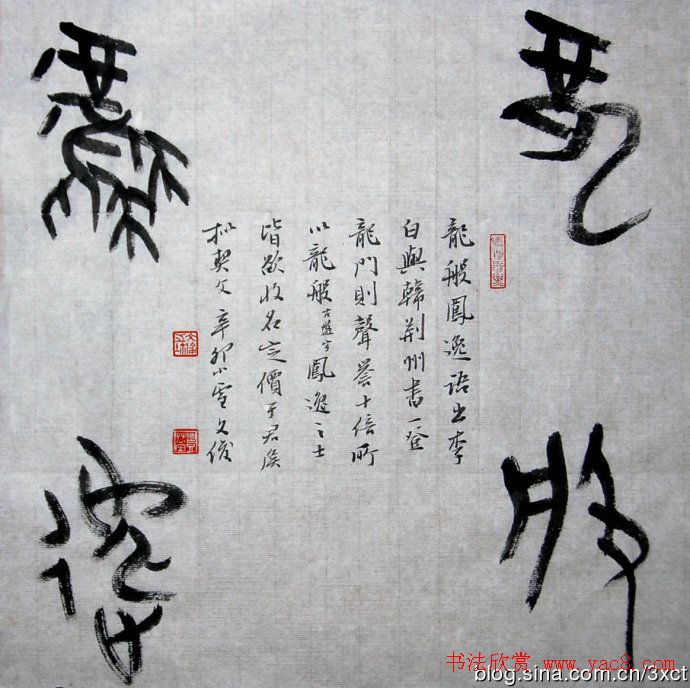 龍
般
鳳
逸
龍般鳳逸語出李
白與韓荆州書一登
龍門則聲譽十倍所
以龍般古盤字鳳逸之士
皆欲收名定價于君侯
擬契文辛卯小雪文俊
书法欣赏 www.yac8.com
blog.sina.com.cn/3xct